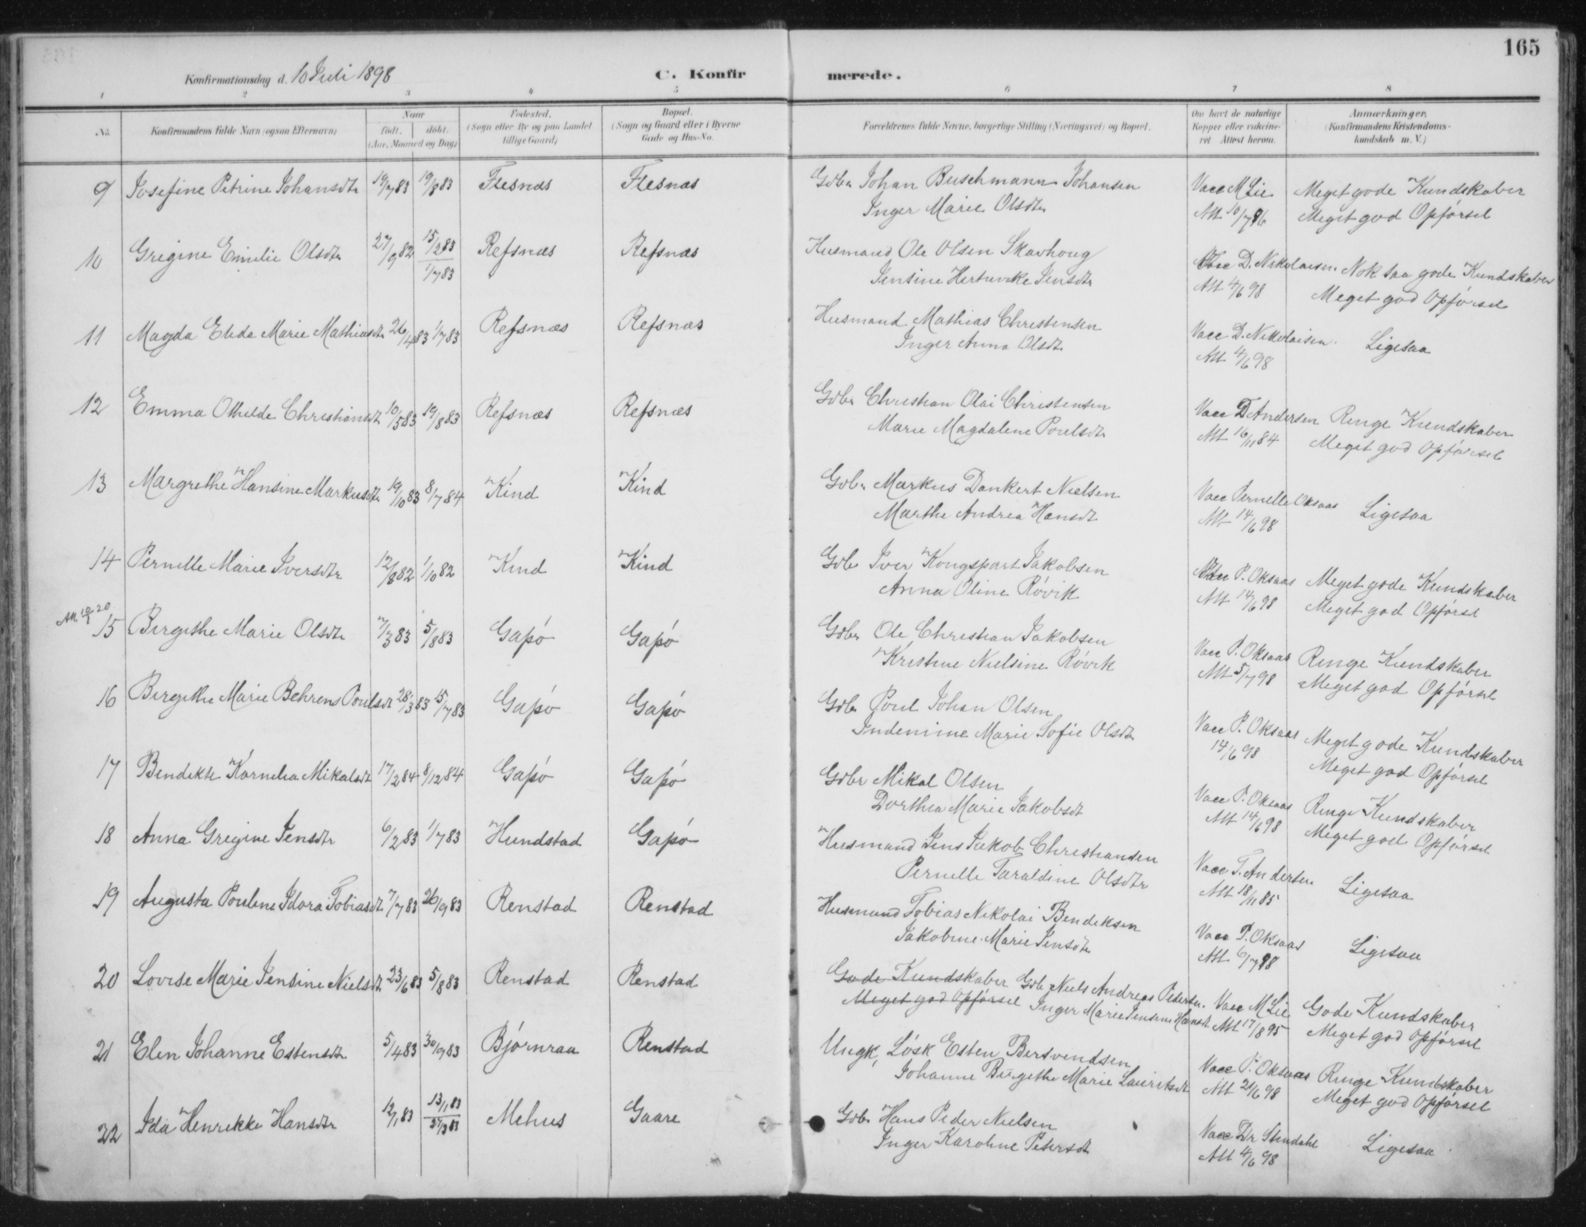 165
Konfirmationsdag d. 10 Juli 1898
C. Konfirmerede.
1 2 3 4 5 6 7 8
No.
Konfirmandens fulde Navn (ogsaa Efternavn)
Naar
født. døbt.
(Aar, Maaned og Dag)
Fødested.
(Sogn eller By og paa Landet
tillige Gaard)
Bopæl.
(Sogn og Gaard eller i Byerne
Gade og Hus-No.
Forældrenes fulde Navne, borgerlige Stilling (Næringsvei) og Bopæl.
Om havt de naturlige
Kopper eller vaccine-
ret. Attest herom.
Anmærkninger.
(Konfirmandens Kristendoms-
kundskab m. V.)
9 Josefine Petrine Johansdtr 19/7 83 19/8 83 Flesnæs Flesnæs Gdbr Johan Buschmann Johansen Vacc M Lie Meget gode Kundskaber
Inger Marie Olsdtr Att 10/7 86 Meget god Opførsel
10 Gregine Emilie Olsdtr 27/9 82 15/2 83 Refsnæs Refsnæs Husmand Ole Olsen Skavhoug Vacc D. Nikolaisen Nok saa gode Kundskaber
1/7 83 Jensine Hertvikke Jensdtr Att 4/6 98 Meget god Opførsel
11 Magda Elida Marie Mathiasdtr 26/4 83 1/7 83 Refsnæs Refsnæs Husmand Mathias Christensen Vacc D. Nikolaisen Ligesaa
Inger Anna Olsdtr Att 4/6 98
12 Emma Othilde Christiansdtr 10/5 83 19/8 83 Refsnæs Refsnæs Gdbr Christian Olai Christensen Vacc D Andersen Ringe Kundskaber
Marie Magdalene Poulsdtr Att 16/11 84 Meget god Opførsel
13 Margrethe Hansine Markusdtr 19/10 83 8/7 84 Kind Kind Gdbr Markus Dankert Nielsen Vacc Pernelle Oksaas Ligesaa
Marthe Andrea Hansdtr Att 14/6 98
14 Pernille Marie Iversdtr 12/8 82 1/10 82 Kind Kind Gdbr Iver Kongspart Jakobsen Vacc P. Oksaas Meget gode Kundskaber
Anna Oline Røvik Att 14/6 98 Meget god Opførsel
15 Birgithe Marie Olsdtr 7/3 83 5/8 83 Gapø Gapø Gdbr Ole Christian Jakobsen Vacc P. Oksaas Ringe Kundskaber
Kristine Nielsine Røvik Att 5/7 98 Meget god Opførsel
16 Birgithe Marie Behrens Poulsdtr 28/3 83 15/7 83 Gapø Gapø Gdbr Poul Johan Olsen Vacc P. Oksaas Meget gode Kundskaber
Marie Sofie Olsdtr 14/6 98 Meget god Opførsel
17 Bendikte Kornelia Mikalsdtr 17/2 84 8/12 84 Gapø Gapø Gdbr Mikal Olsen Vacc P. Oksaas Ringe Kundskaber
Dorthea Marie Jakobsdt Att 14/6 98 Meget god Opførsel
18 Anna Gregine Jensdtr 6/2 83 1/7 83 Hundstad Gapø Husmand Jens Jakob Christiansen Vacc T. Andersen Ligesaa
Pernille Taraldine Olsdtr Att 18/11 85
19 Augusta Pouline Idora Tobiasdt 7/7 83 26/9 83 Renstad Renstad Husmand Tobias Nikolai Bendiksen Vacc P. Oksaas Ligesaa
Jakobine Marie Jensdtr Att 6/7 98
20 Lovise Marie Jensine Nielsdt 23/6 83 5/8 83 Renstad Renstad Gode Kundskaber Gdb. Niels Andreas Pedersen Vacc M Lie Gode Kundskaber
Meget god Opførsel Inger Marie Jensine Hansdt Att 17/8 95 Meget god Opførsel
21 Elen Johanne Estensdtr 5/4 83 30/9 83 Bjørnraa Renstad Ungk, Løsk Esten Bersvendsen Vacc P. Oksaas Ringe Kundskaber
Johanne Birgithe Marie Lauritsdt Att 21/6 98 Meget god Opførsel
22 Ida Henrikke Hansdtr 12/1 83 13/1 83 Mehus Gaare Gdb. Hans Peder Nielsen Vacc Dr Stendahl Ligesaa
Inger Karoline Petersdt Att 4/6 98